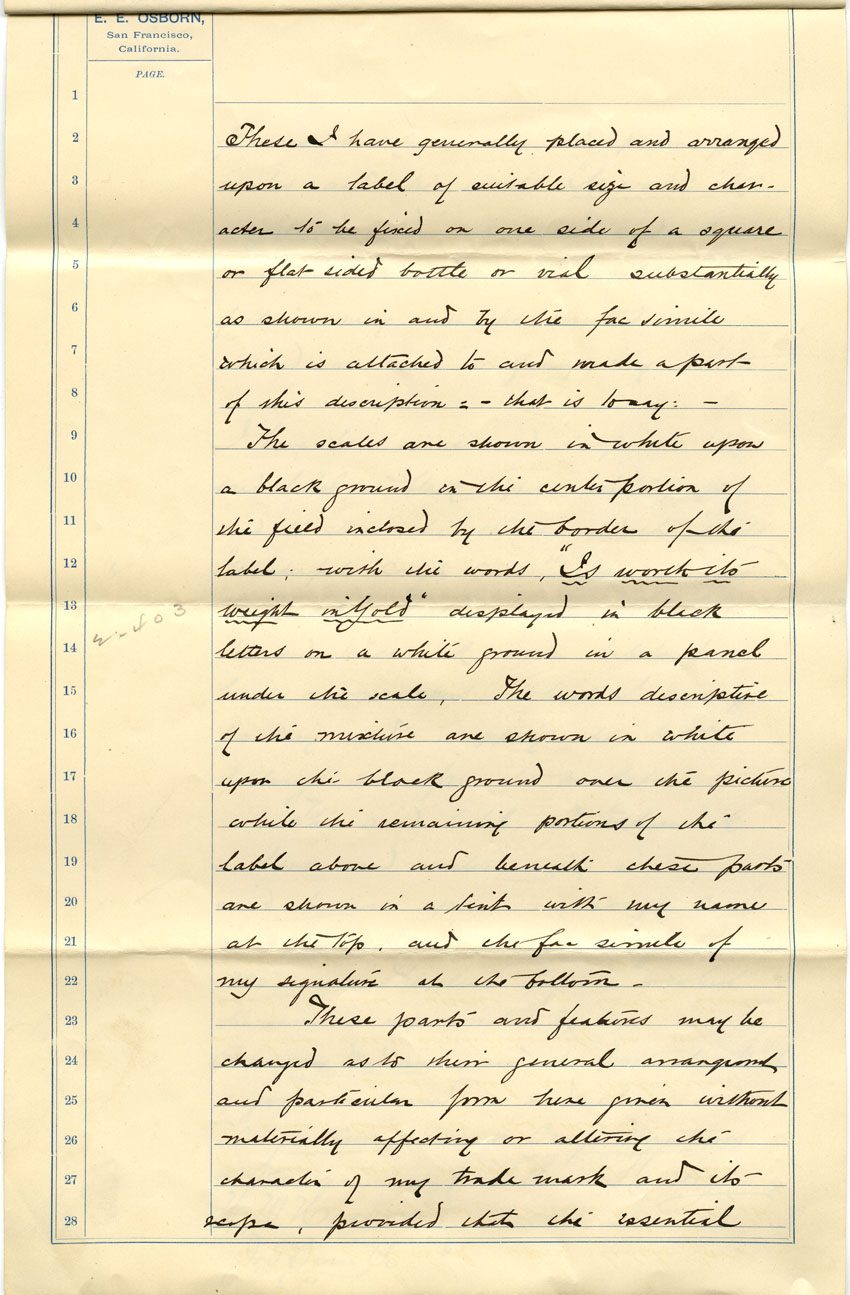 E. E. OSBORN,
San Francisco,
California.
PAGE.
1
2 These I have generally placed and arranged
3 upon a label of suitable size and char-
4 acter to be fixed on one side of a square
5 or flat sided bottle or vial substantially
6 as shown in and by the fac simile
7 which is attached to and made a part
8 of this description :- that is to say: -
9 The scales are shown in white upon
10 a black ground in the center portion of
11 the field inclosed by the border of the
12 label; with the words, "Is worth its
13 weight in Gold" displayed in black
14 letters on a white ground in a panel
15 under the scale, The words descriptive
16 of the mixture are shown in white
17 upon the black ground over the picture
18 while the remaining portions of the
19 label above and beneath these parts
20 are shown in a tint with my name
21 at the top, and the fac simile of
22 my signature at the bottom -
23 These parts and features may be
24 changed as to their general arrangement
25 and particular form here given without
26 materially affecting or altering the
27 character of my trade mark and its
28 scope, provided that the essential